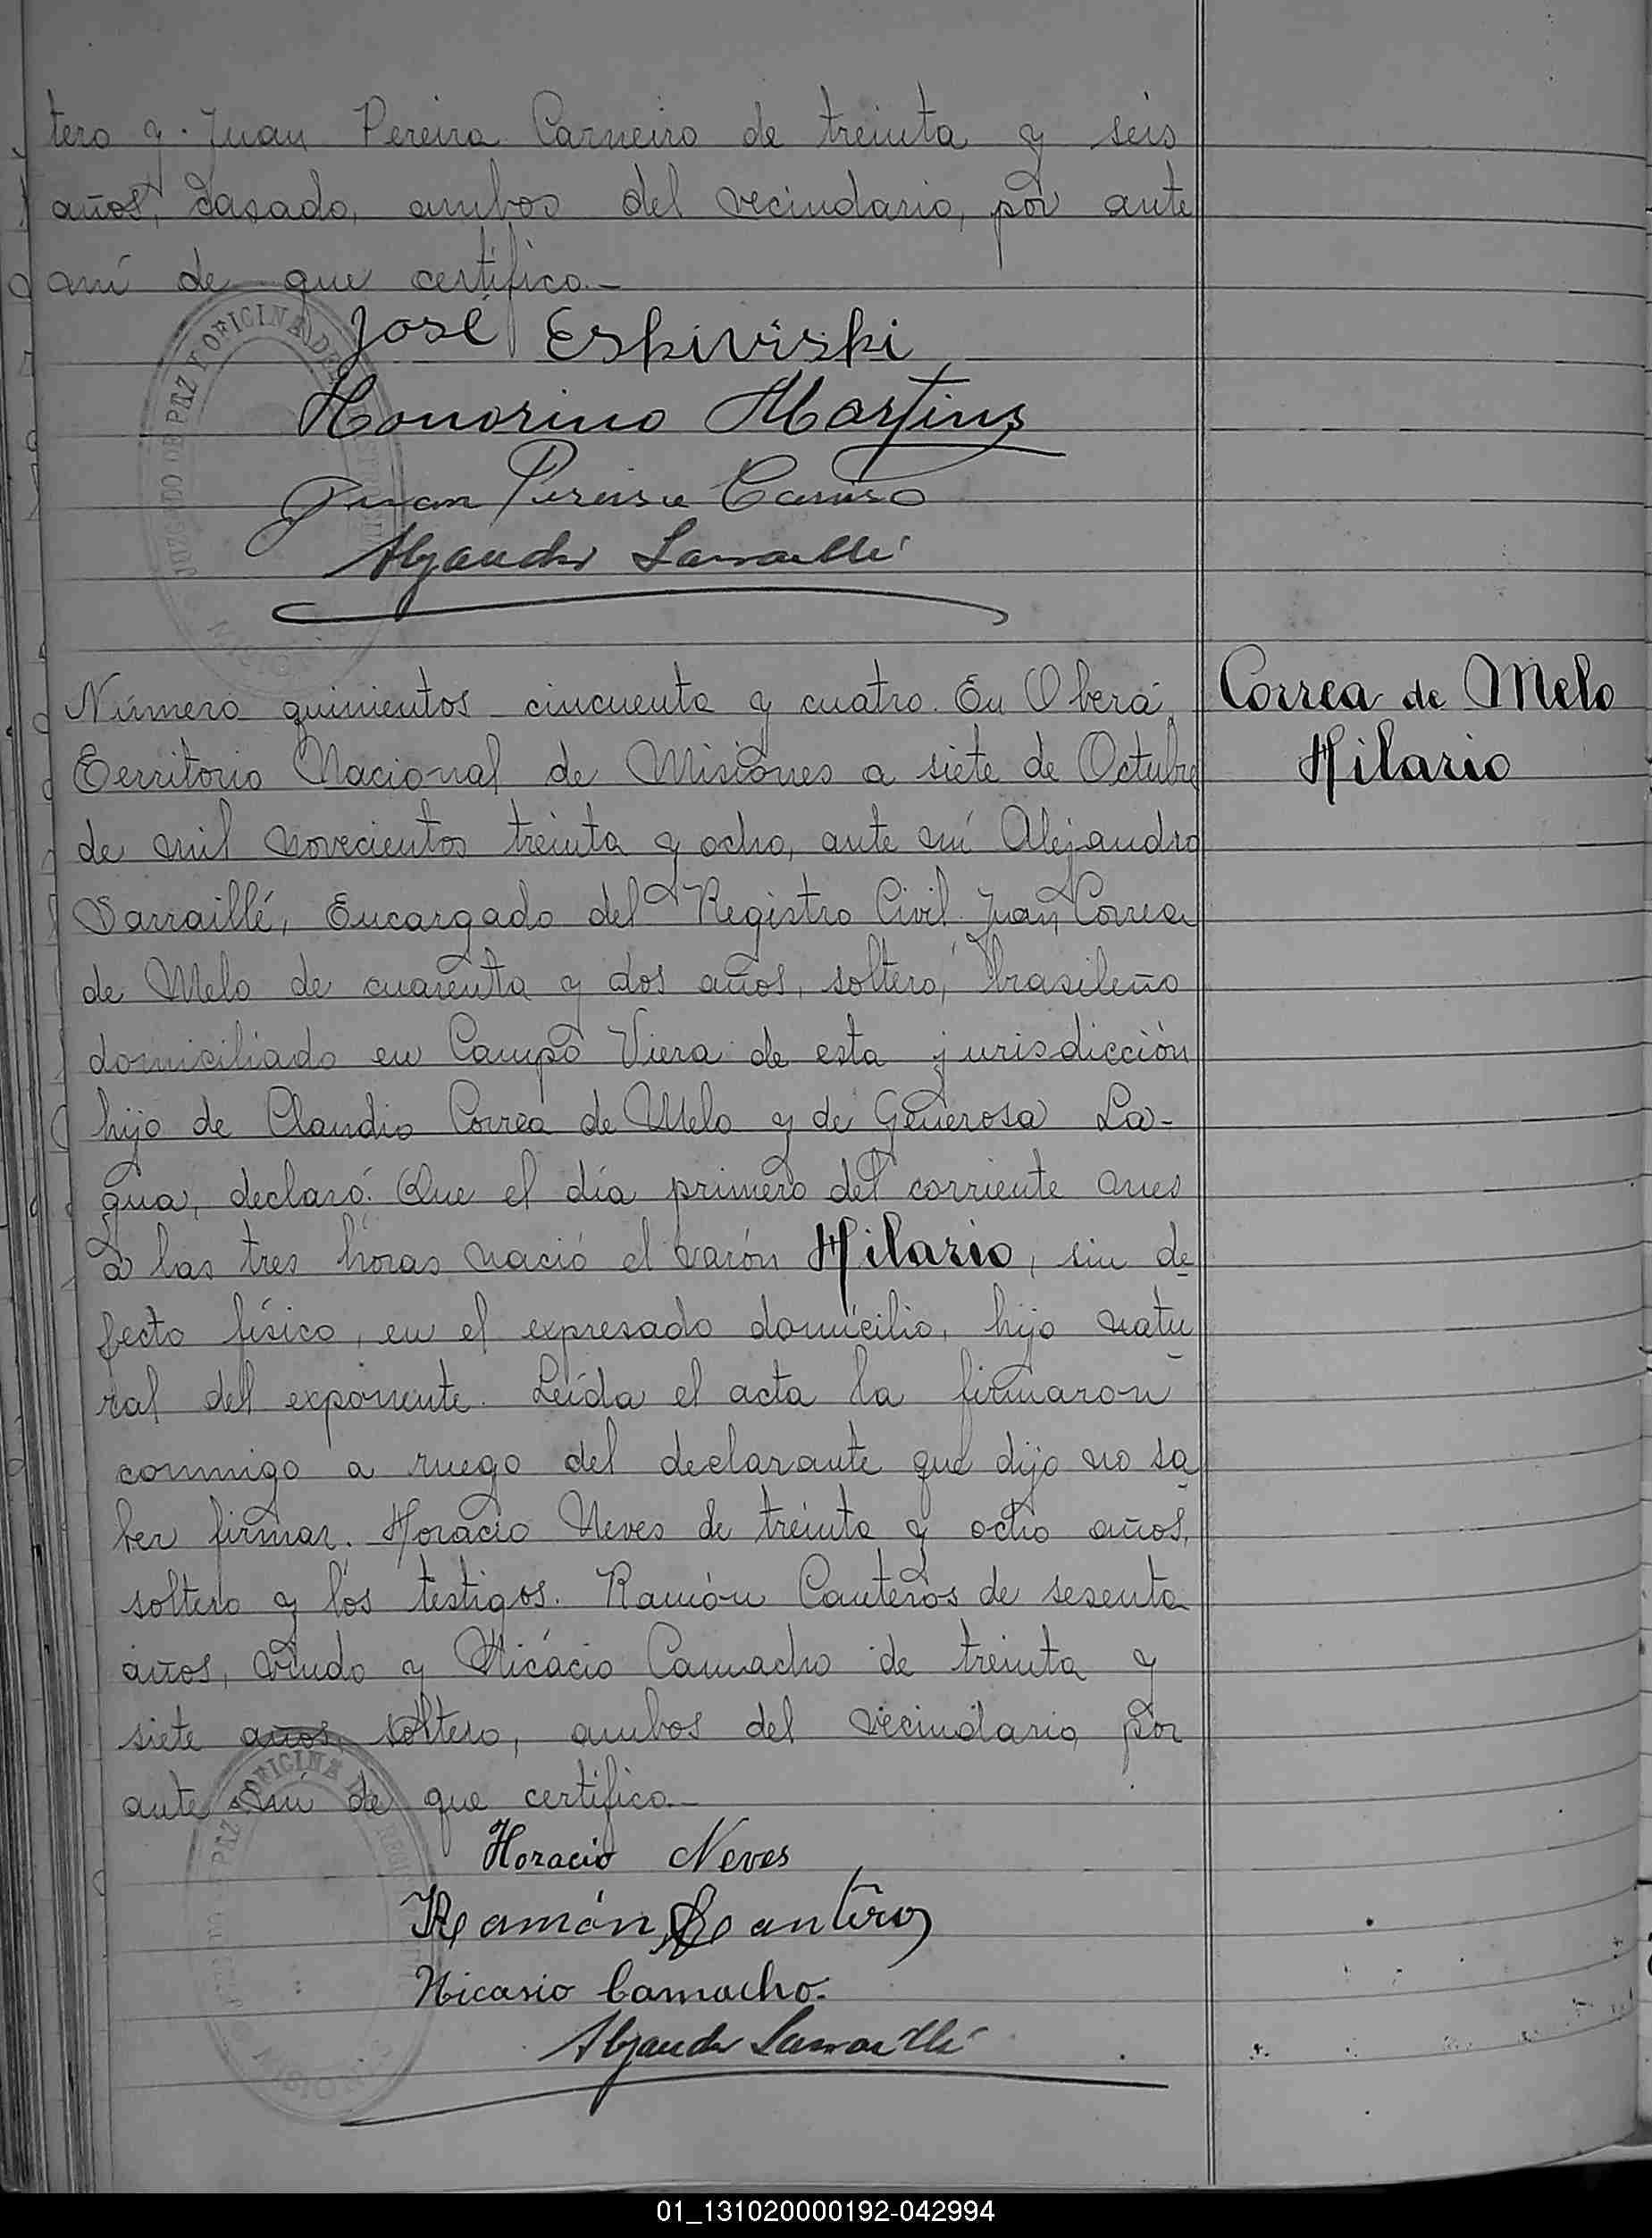 tero y Juan Pereira Carneiro de treinta y seis
años, casado, ambos del vecindario, por ante
mí de que certifico.-
José Eskiviski
Honorino Martins
Juan Pereira Carniro
Alejandro Larraillé
Número quinientos cincuenta y cuatro. En Oberá,
Territorio Nacional de Misiones a siete de Octubre
de mil novecientos treinta y ocho, ante mí Alejandro
Larraillé, Encargado del Registro Civil. Juan Correa
de Melo de cuarenta y dos años, soltero, brasileño
domiciliado en Campo Viera de esta jurisdicción
hijo de Claudio Correa de Melo y de Generosa La-
gua, declaró: Que el día primero del corriente mes
a las tres horas nació el varón Hilario, sin de
fecto físico, en el expresado domicilio, hijo natu
ral del exponente. Leída el acta la firmaron
conmigo a ruego del declarante que dijo no sa
ber firmar. Horacio Neves de treinta y ocho años,
soltero y los testigos. Ramón Canteros de sesenta
años, viudo y Nicacio Camacho de treinta y
siete años, soltero, ambos del vecindario, por
ante mí de que certifico.-
Horacio Neves
Ramón Canteros
Nicasio Camacho.
Alejandro Larraillé
Correa de Melo
Hilario
JUZGADO DE PAZ Y OFICINA DE
MISIONES
PAZ Y OFICINA DE REGI
MISIONES
01_131020000192-042994